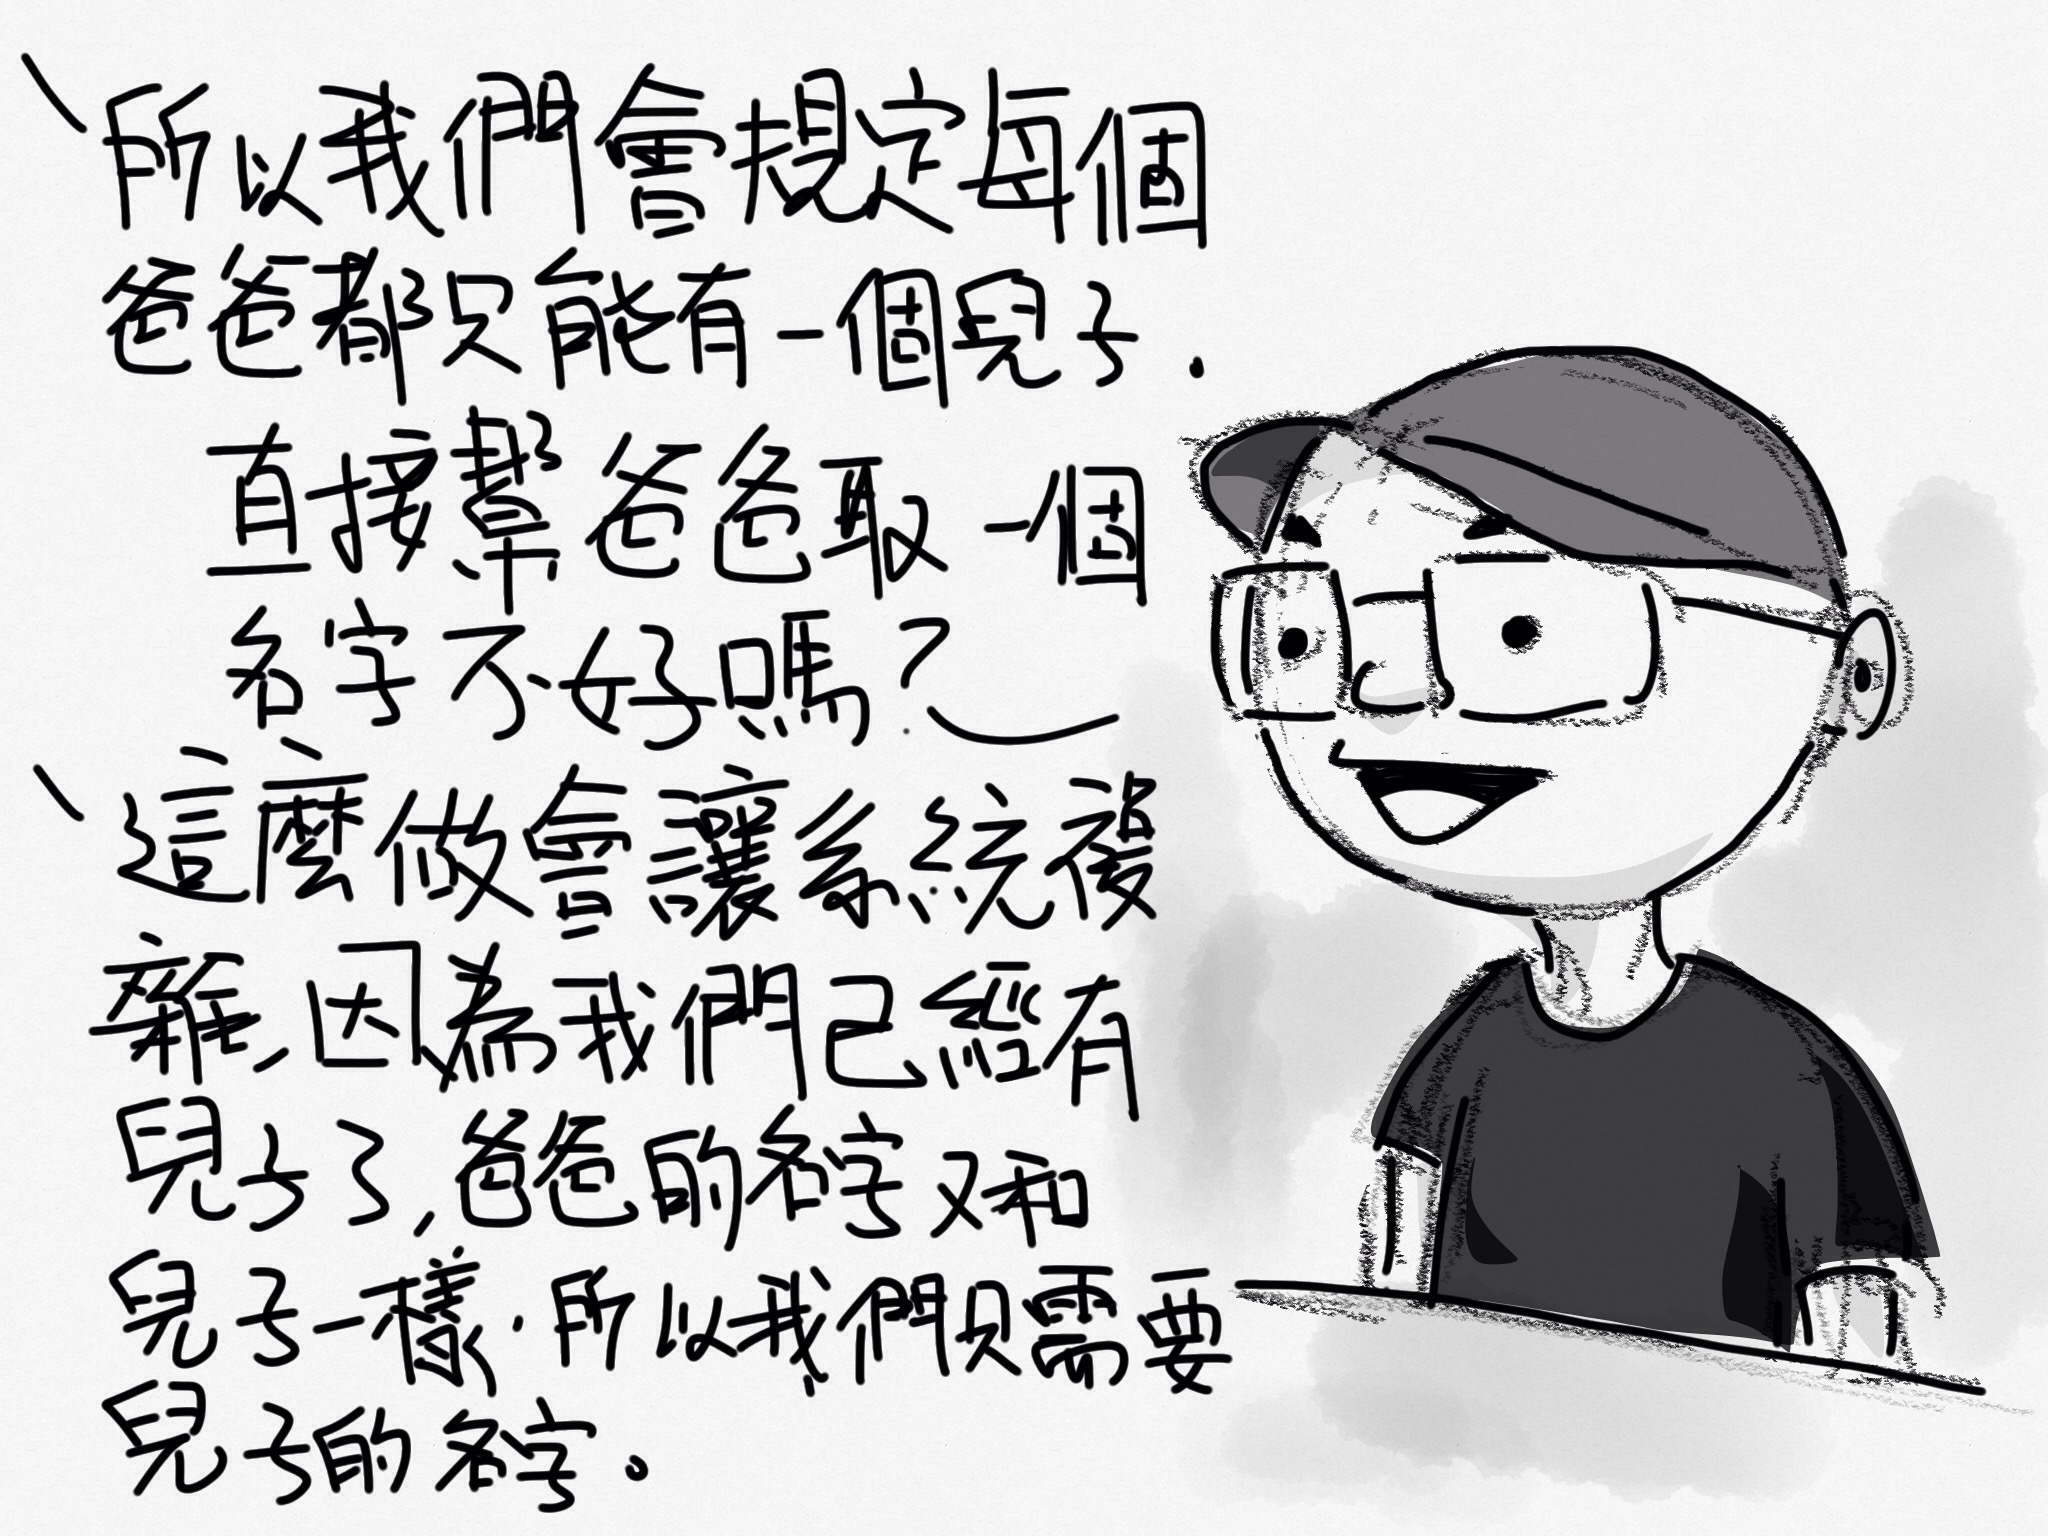 所以我們會規定每個
爸爸都只能有一個兒子.
直接幫爸爸取一個
名字不好嗎?
這麼做會讓系統複
雜,因為我們已經有
兒子了,爸爸的名字又和
兒子一樣.所以我們只需要
兒子的名字。